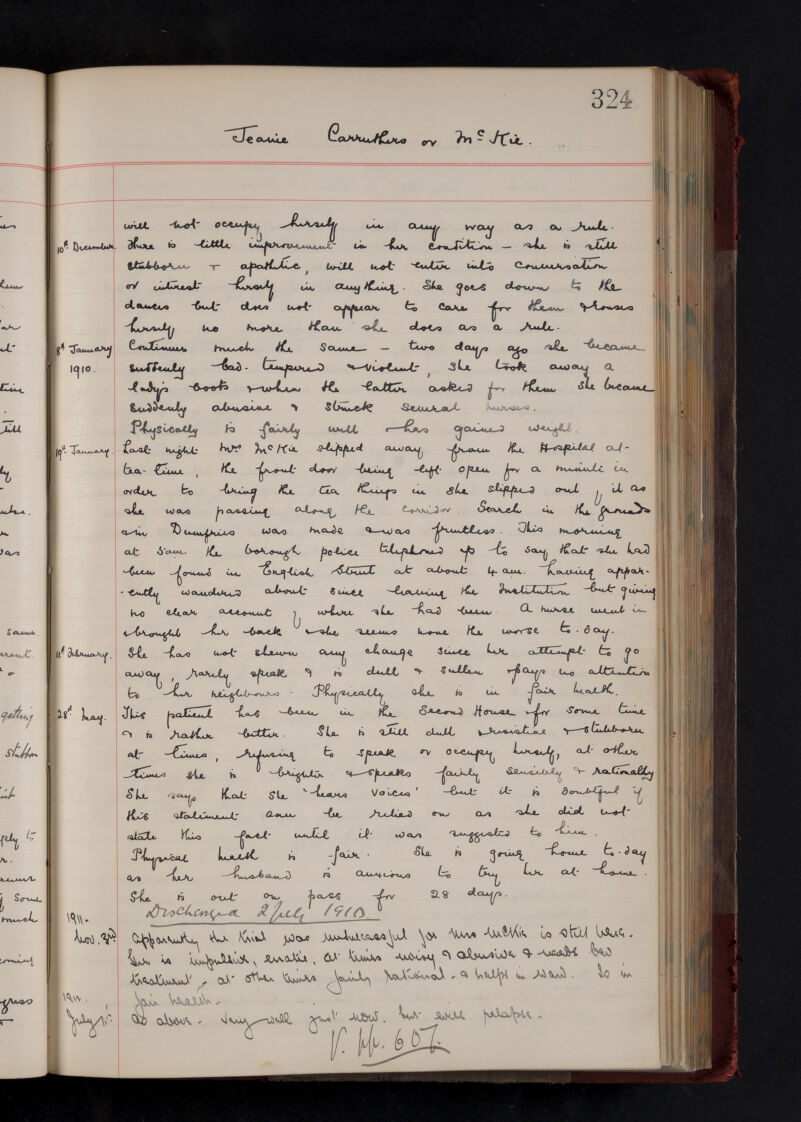 324
Jeanie Carruthers or McKie.
will not occupy herself in any way as a rule.
10th December. There is little improvement in her condition – she is still
stubborn & apathetic, will not enter into conversation
or interest herself in anything. She goes down to the
dances but does not appear to care for them & rouses
herself no more than she does as a rule.
8th January 1910. Continues much the same – two days ago she became
suddenly bad-tempered & violent, she took away a
lady's boots & when the latter asked for them she became
suddenly abusive & struck several nurses.
Physically is fairly well & has gained weight.
19th January. Last night Mrs McKie slipped away from the Hospital at-
tea-time, the front door being left open for a minute in
order to bring the tea things in she slipped out by it as
she was passing along the corridor. Search in the grounds
& in Dumfries was made & was fruitless. This morning
at 5 am. the borough police telephoned up to say that she had
been found in English Street at about 4 am. having appar-
-ently wandered about since leaving the Institution but giving
no clear account of where she had been. A nurse went in
& brought her back & she seems none the worse to-day.
11th February. She has not shewn any change since her attempt to go
away, rarely speaks & is dull & sullen & pays no attention
to her neighbours. Physically she is in fair health.
28th May. This patient has been in the Second House for some time
& is rather better. She is still dull & resistive & stubborn
at times, refusing to speak or occupy herself, at other
times she is brighter & speaks fairly sensibly & rationally
She says that she 'hears voices' but it is doubtful if
this statement can be relied on as she did not
state this fact until it was suggested to him.
Physical health is fair. She is going home to-day
as her husband is anxious to try her at home.
She is out on pass for 28 days.
Discharged 2 July 1910
1911. Nov. 3rd Apparently the trial was unsuccessful for Mrs McKie is still here.
She is impulsive, erratic, at times noisy & abusive & needs bed
treatment – at other times fairly rational & helps in ward. Is in
fair health.
July As above. Very well just now, but will relapse.
V. pp. 607.